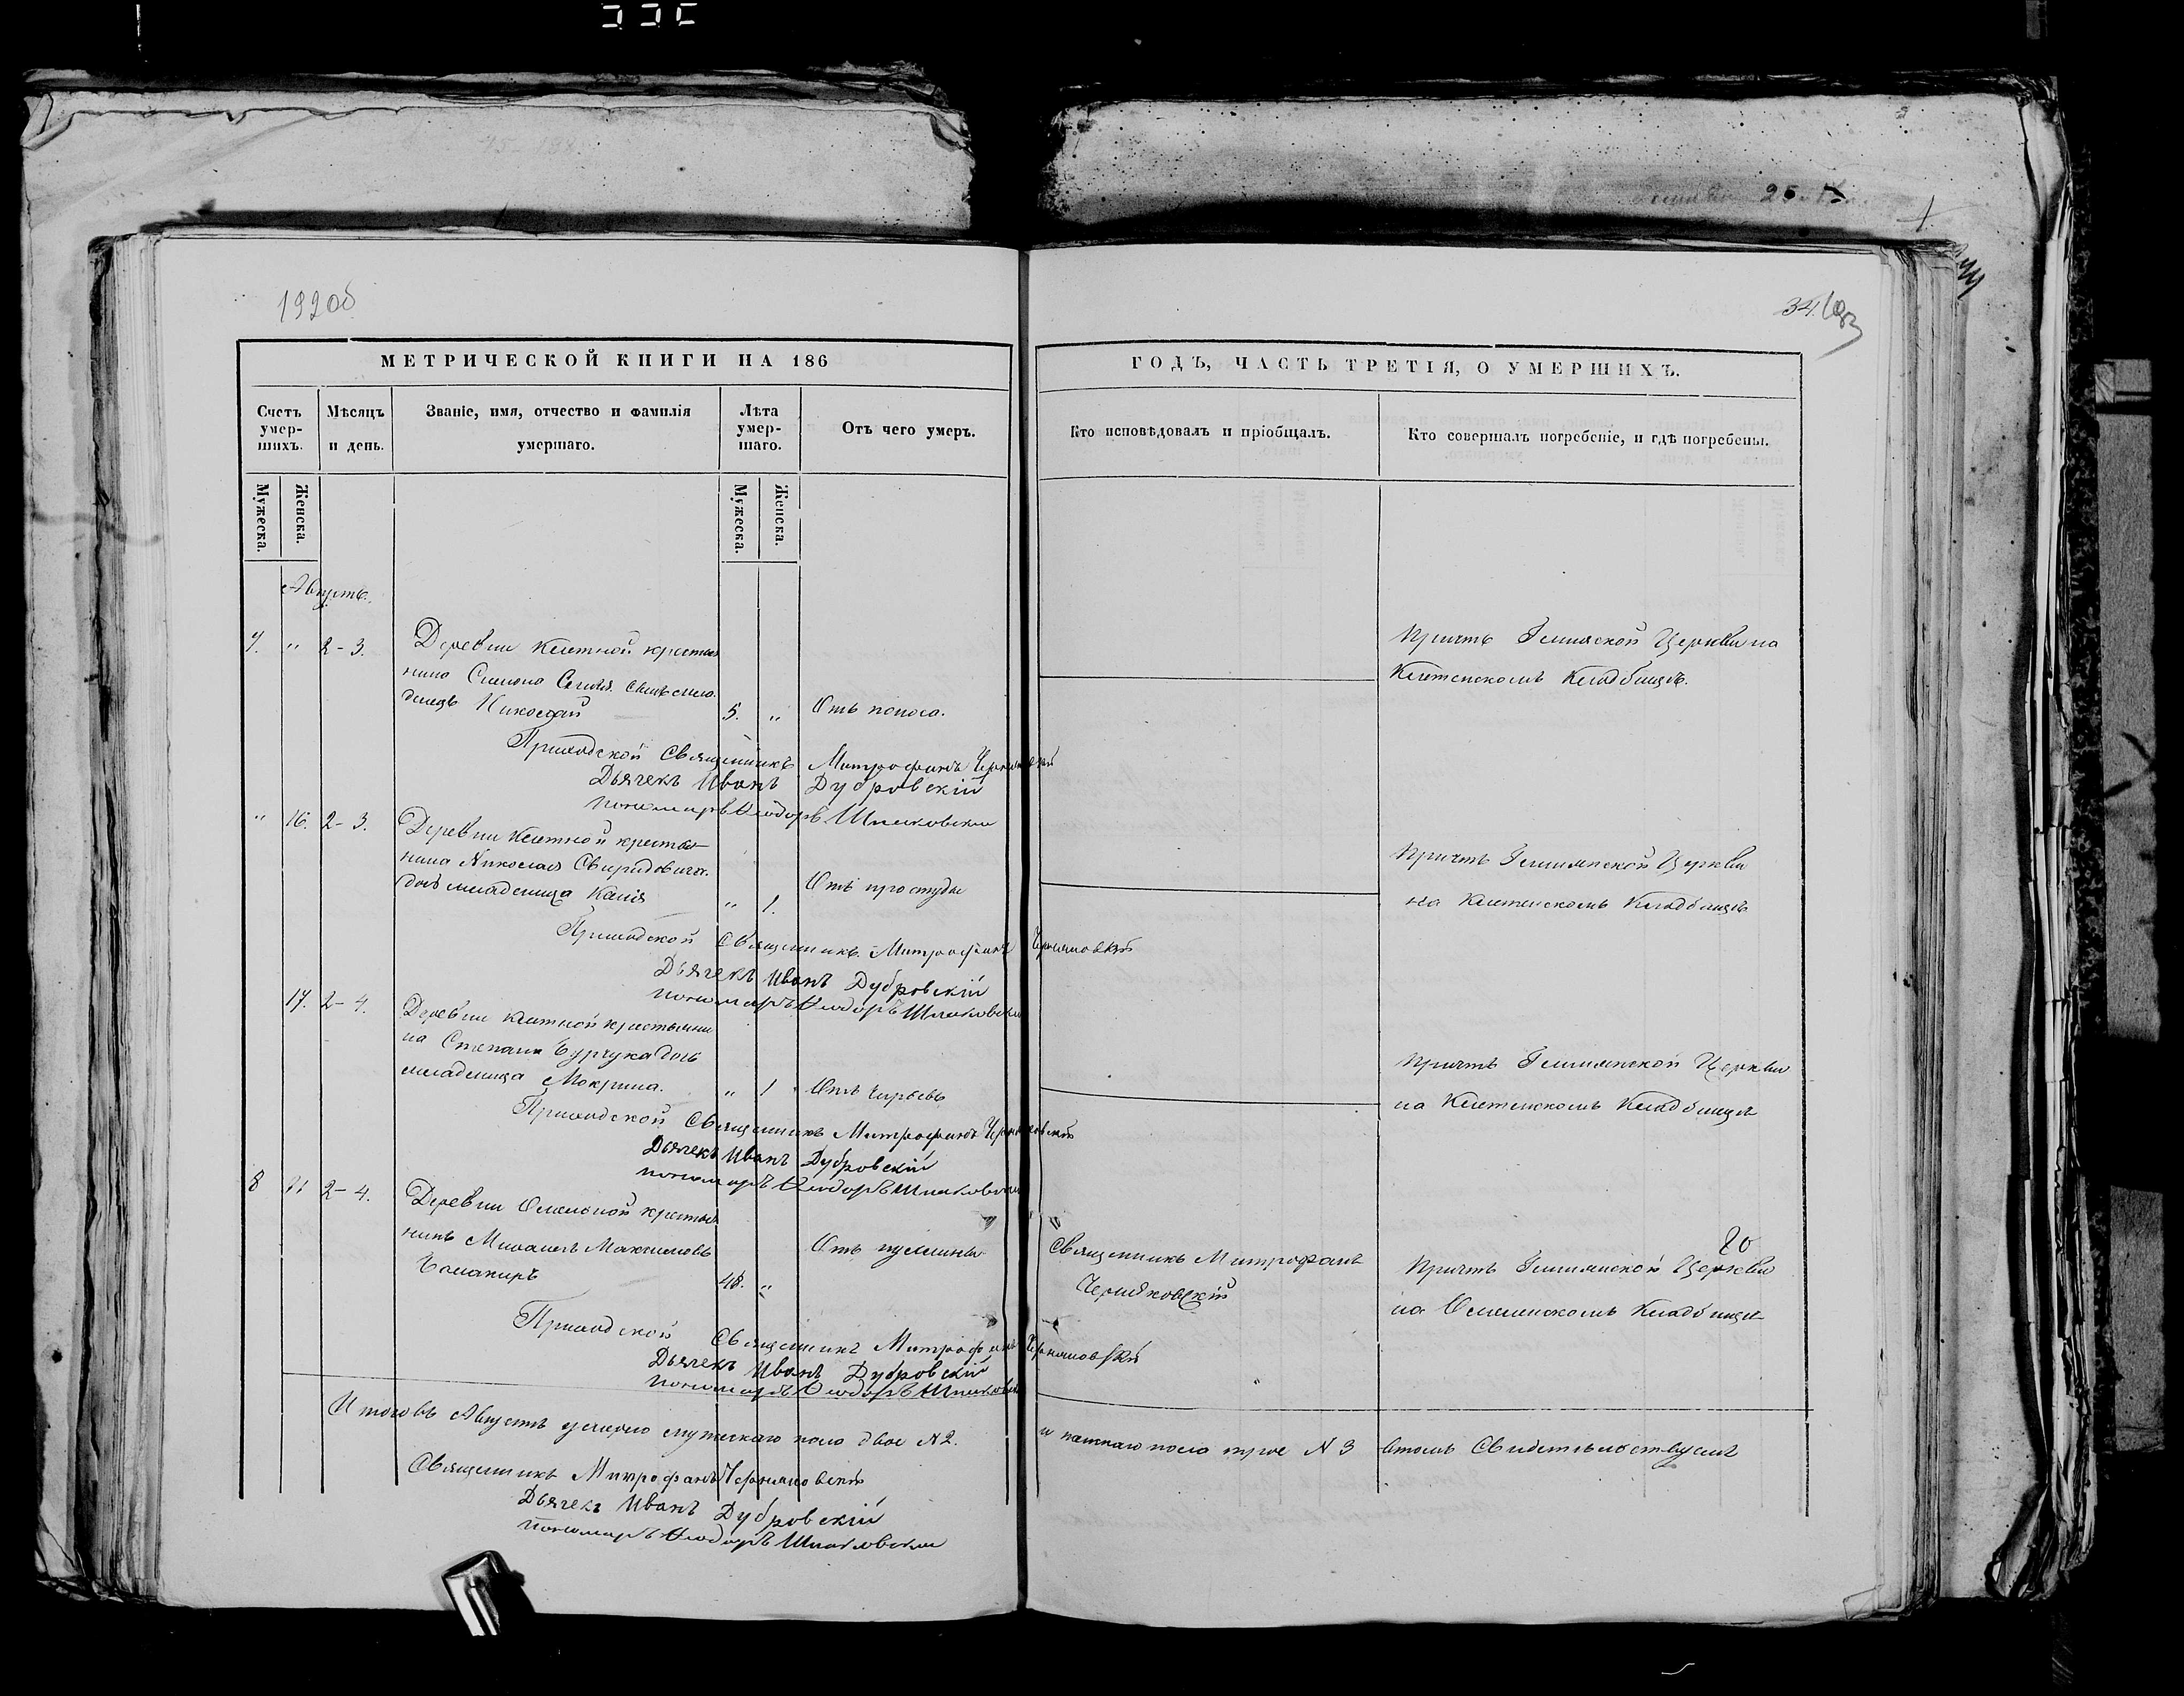 192об
34.
МЕТРИЧЕСКОЙ КНИГИ НА 186
ГОДЪ, ЧАСТЬ ТРЕТІЯ, О УМЕРШИХЪ.
Счетъ умер-шихъ.
Мѣсяцъ и день.
Званіе, имя, отчество и фамилія умершаго.
Лѣта умер-шаго.
Отъ чего умеръ.
Кто исповѣдовалъ и пріобщалъ.
Кто совершалъ погребеніе, и гдѣ погребены.
Мужеска.
Женска.
Мужеска.
Женска.
Августъ.
7. " 2-3.
Деревни Клетной крестья
нина Симона сынъ мла
денецъ Николай
5. " Отъ поноса.
Причтъ Церкви на
Клетенскомъ Кладбищѣ.
Приходской Священникъ Митрофанъ Черняковскій
Дьячекъ Иванъ Дубровскій
пономарь Ѳеодоръ Шпаковскій
" 16. 2-3.
Деревни Клетной крестья
нина Николая Свиридовича
дочь младеница
" 1. Отъ простуды
Причтъ Церкви
на Клетенскомъ Кладбищѣ
Приходской Священникъ Митрофанъ Черняковскій
Дьячекъ Иванъ Дубровскій
пономарь Ѳеодоръ Шпаковскій
17. 2-4.
Деревни Клетной крестьяни
на Степана Бурчука дочь
младеница Мокрина.
" 1 Отъ чирьевъ
Причтъ Церкви
на Клетенскомъ Кладбищѣ
Приходской Священникъ Митрофанъ Черняковскій
Дьячекъ Иванъ Дубровскій
пономарь Ѳеодоръ Шпаковскій
8 " 2-4.
Деревни Омельной крестья
нинъ Михаилъ Максимовъ
48. "
Священникъ Митрофанъ
Черняковскій
20
Причтъ Церкви
на Омеленскомъ Кладбищѣ
Приходской Священникъ Митрофанъ Черняковскій
Дьячекъ Иванъ Дубровскій
пономарь Ѳеодоръ Шпаковскій
Итого въ Августѣ умерло мужескаго пола двое N 2. и женскаго пола трое N 3 въ томъ Свидѣтельствуемъ
Священникъ Митрофанъ Черняковскій
Дьячекъ Иванъ Дубровскій
пономарь Ѳеодоръ Шпаковскій